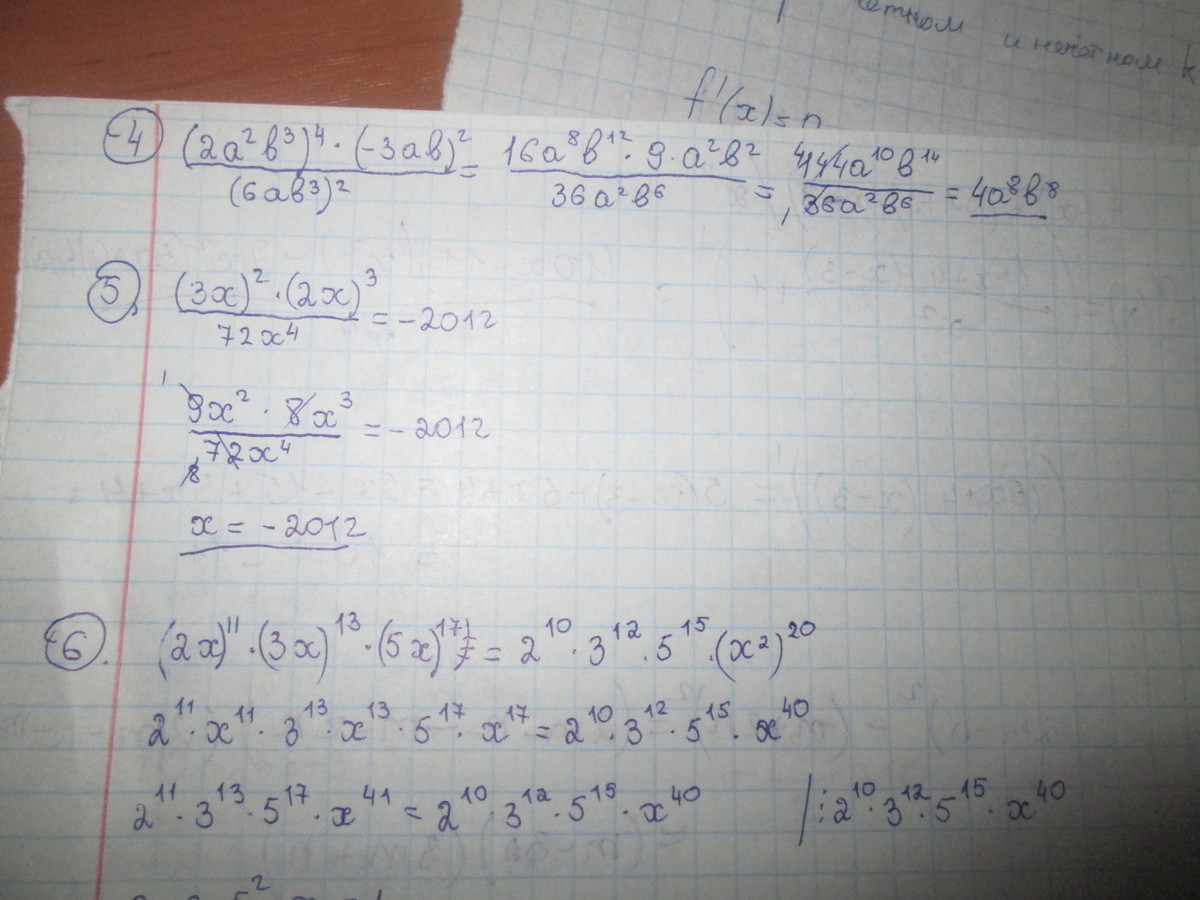 етном и нечетном k
f'(x)=n
4 (2a²b³)⁴·(-3ab)²/(6ab³)² = 16a⁸b¹²·9·a²b²/36a²b⁶ = 144a¹⁰b¹⁴/36a²b⁶ = 4a⁸b⁸
5, (3x)²·(2x)³/72x⁴ = -2012
9x²·8x³/72x⁴ = -2012
x = -2012
6. (2x)¹¹·(3x)¹³·(5x)¹⁷ = 2¹⁰·3¹²·5¹⁵·(x²)²⁰
2¹¹·x¹¹·3¹³·x¹³·5¹⁷·x¹⁷ = 2¹⁰·3¹²·5¹⁵·x⁴⁰
2¹¹·3¹³·5¹⁷·x⁴¹ = 2¹⁰·3¹²·5¹⁵·x⁴⁰ /:2¹⁰·3¹²·5¹⁵·x⁴⁰